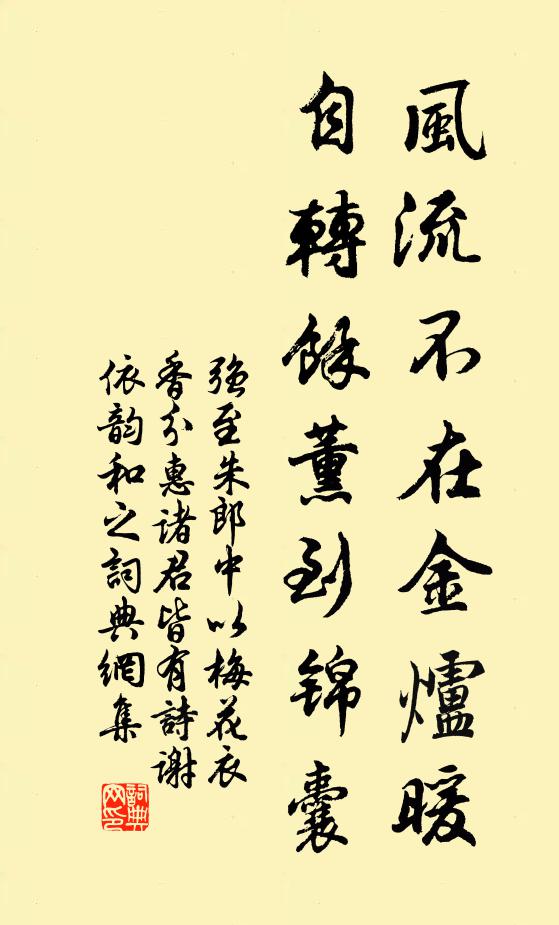 風流不在金爐暖
自轉餘薰到锦囊
強至朱郎中以梅花衣
香分惠诸君皆有詩謝
依韵和之詞典網集
詞典网印